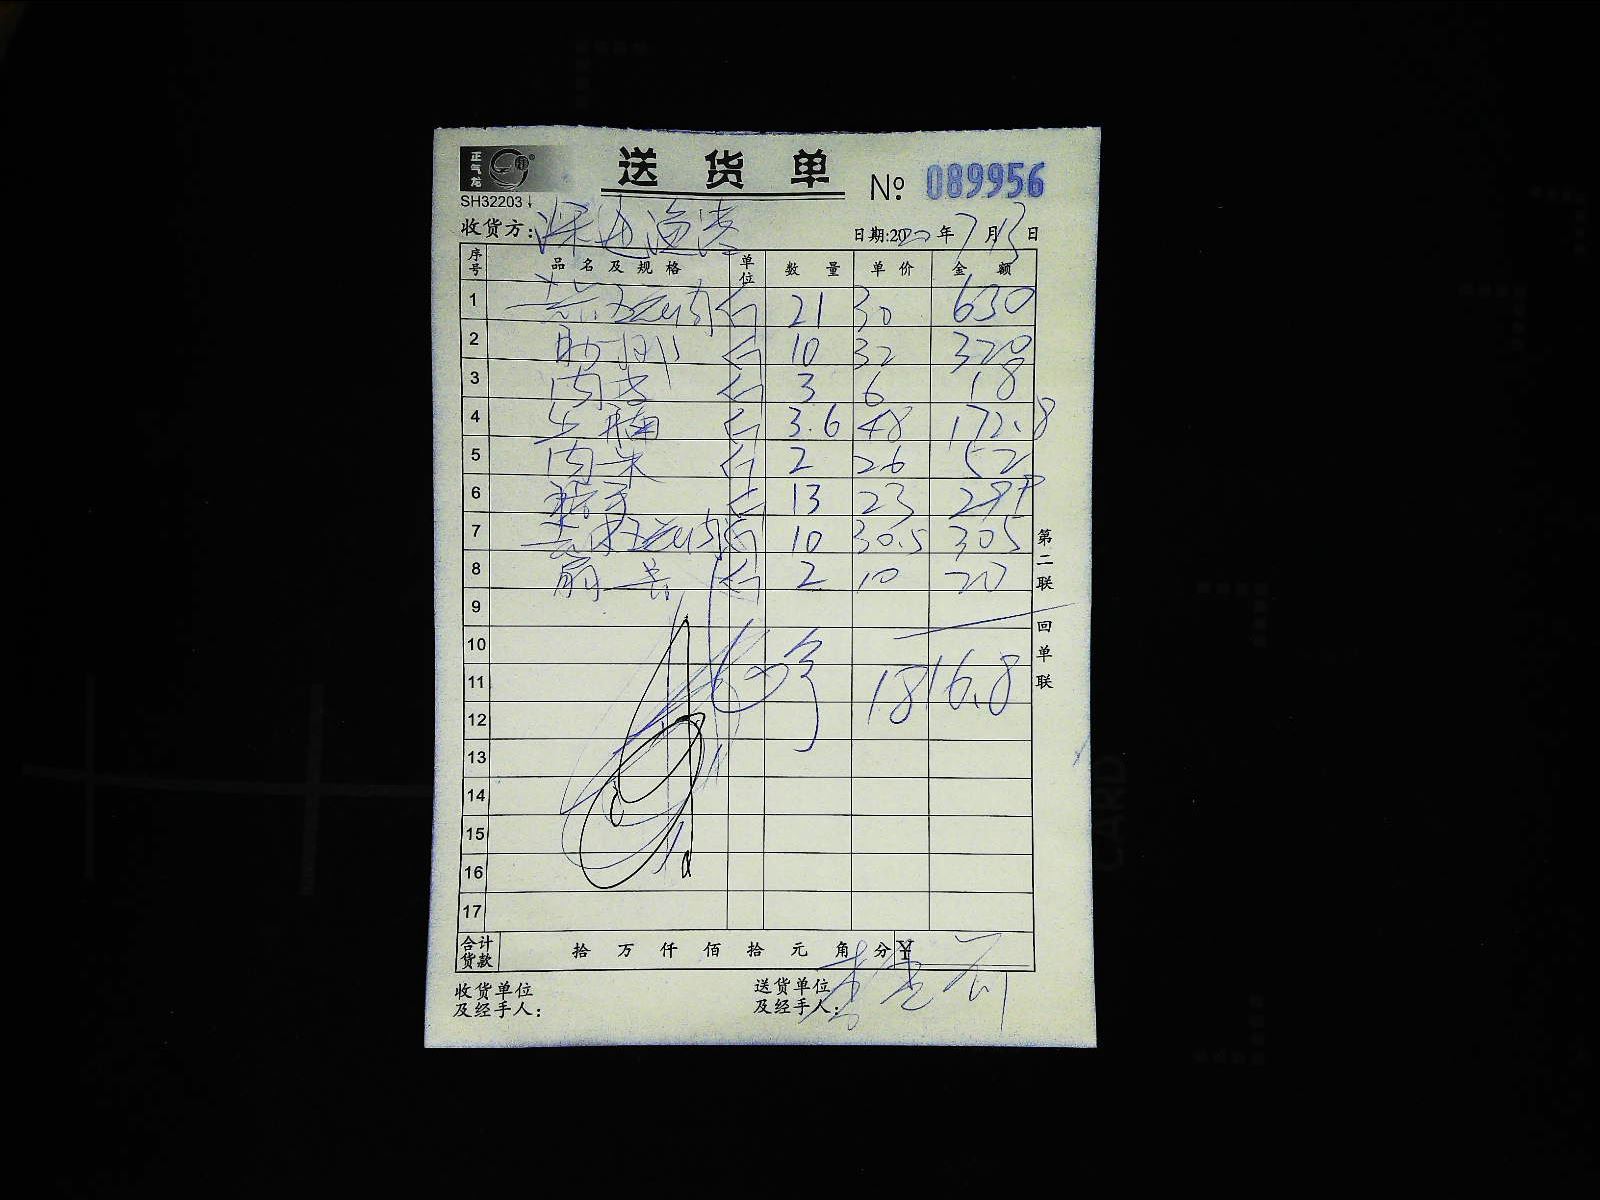 正气龙
送货单
№ 089956
SH32203
收货方:
日期:2020年7月13日
序号 品名及规格 单位 数量 单价 金额
1 五花肉 斤 21 30 630
2 肋排 斤 10 32 320
3 肉 斤 3 6 18
4 牛腩 斤 3.6 48 172.8
5 肉 斤 2 26 52
6 斤 13 23 299
7 五花肉 斤 10 30.5 305
8 斤 2 10 20
9
10
11 1816.8
12
13
14
15
16
17
第二联 回单联
合计货款 拾 万 仟 佰 拾 元 角 分 ¥
收货单位及经手人:
送货单位及经手人: